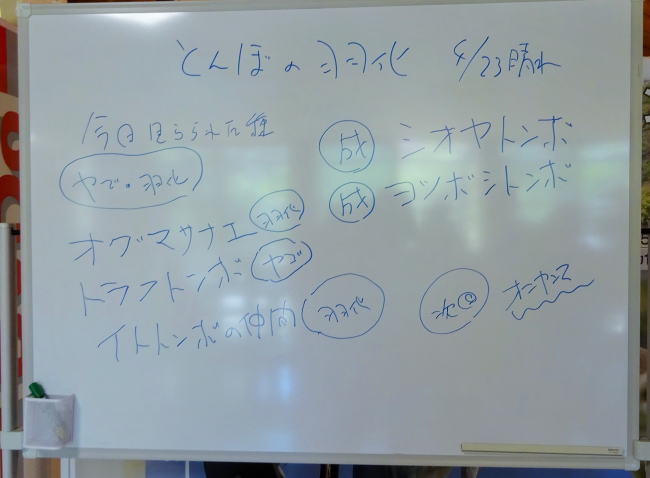 とんぼの羽化 4/23 晴れ
今日見られた種
ヤゴ・羽化
オグマサナエ 羽化
トラフトンボ ヤゴ
イトトンボの仲間 羽化
成 シオヤトンボ
成 ヨツボシトンボ
次回 オニヤンマ